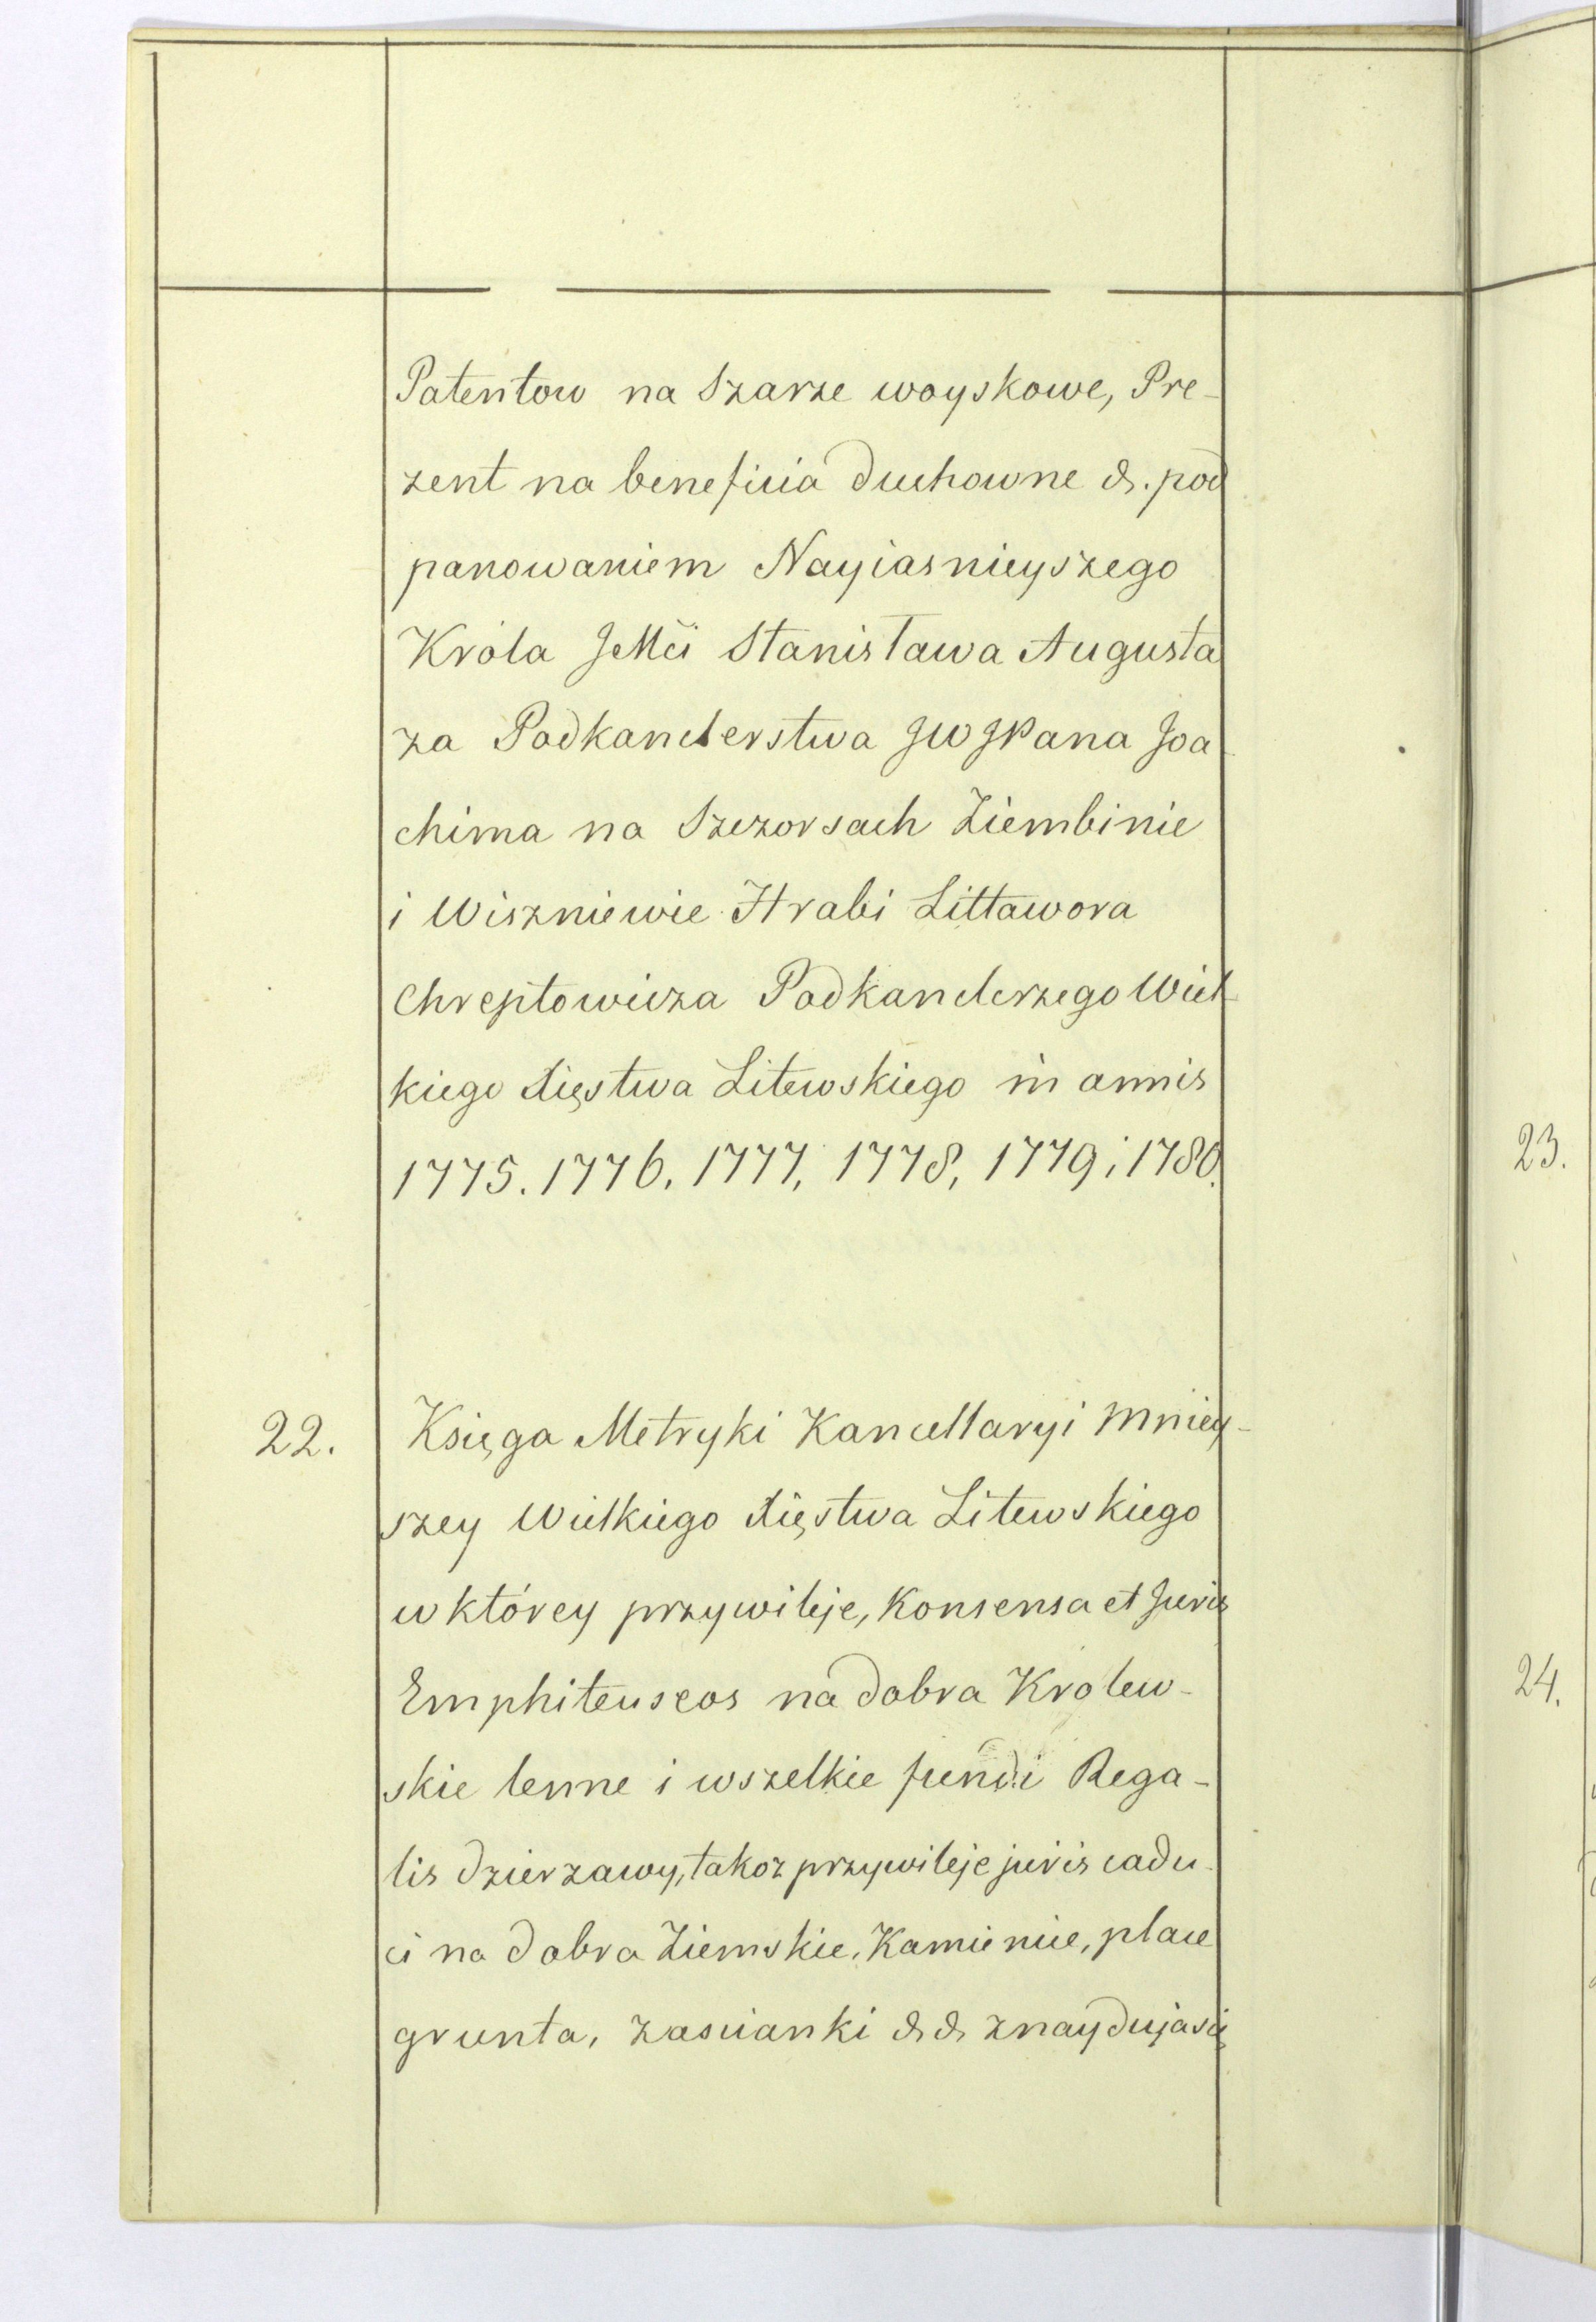 Patentow na Szarze woyskowe, Pre-
zent na beneficia duchowne &. pod
panowaniem Nayiasnieyszego
Króla JeMći Stanisława Augusta
za Podkanclerstwa JW JPana Joa-
chima na Szczorsach Ziembinie
i Wiszniewie Hrabi Littawora
Chreptowicza Podkanclerzego Wiel-
kiego Xięstwa Litewskiego in annis
1775. 1776. 1777, 1778, 1779 i 1780.
22. Księga Metryki Kancellaryi Mniey-
szey Wielkiego Xięstwa Litewskiego
w którey przywileje, Konsensa et Juris
Emphiteuseos na dobra Krolew-
skie lenne i wszelkie fundi Rega-
lis dzierzawy, takoz przywileje juris cadu-
ci na dobra Ziemskie, Kamienice, place
grunta, zascianki & & znaydują się
23.
24.